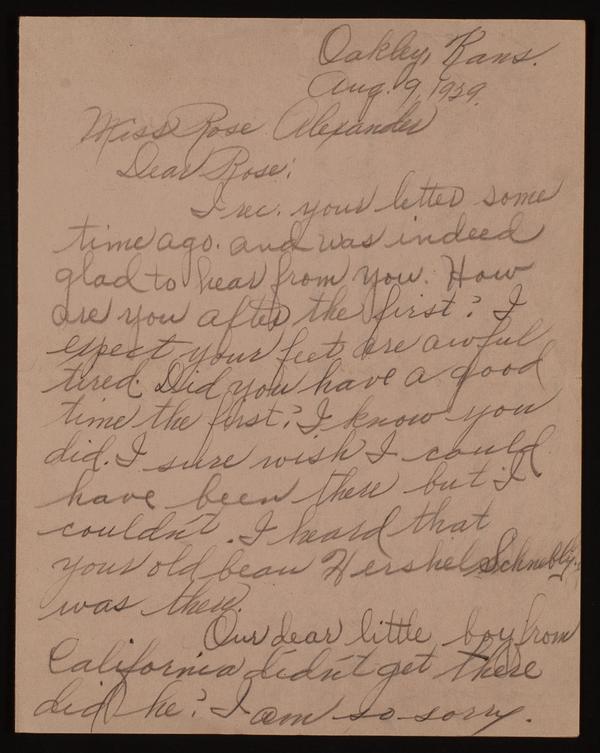 Oakley, Kans.
Aug. 9, 1929.
Miss Rose Alexander
Dear Rose:
I rec. your letter some
time ago. and was indeed
glad to hear from you. How
are you after the first? I
expect your feet are awful
tired. Did you have a good
time the first? I know you
did. I sure wish I could
have been there but I
couldn't. I heard that
your old beau Hershel Schnebly
was there.
Our dear little boy from
California didn't get there
did he? I am so sorry.